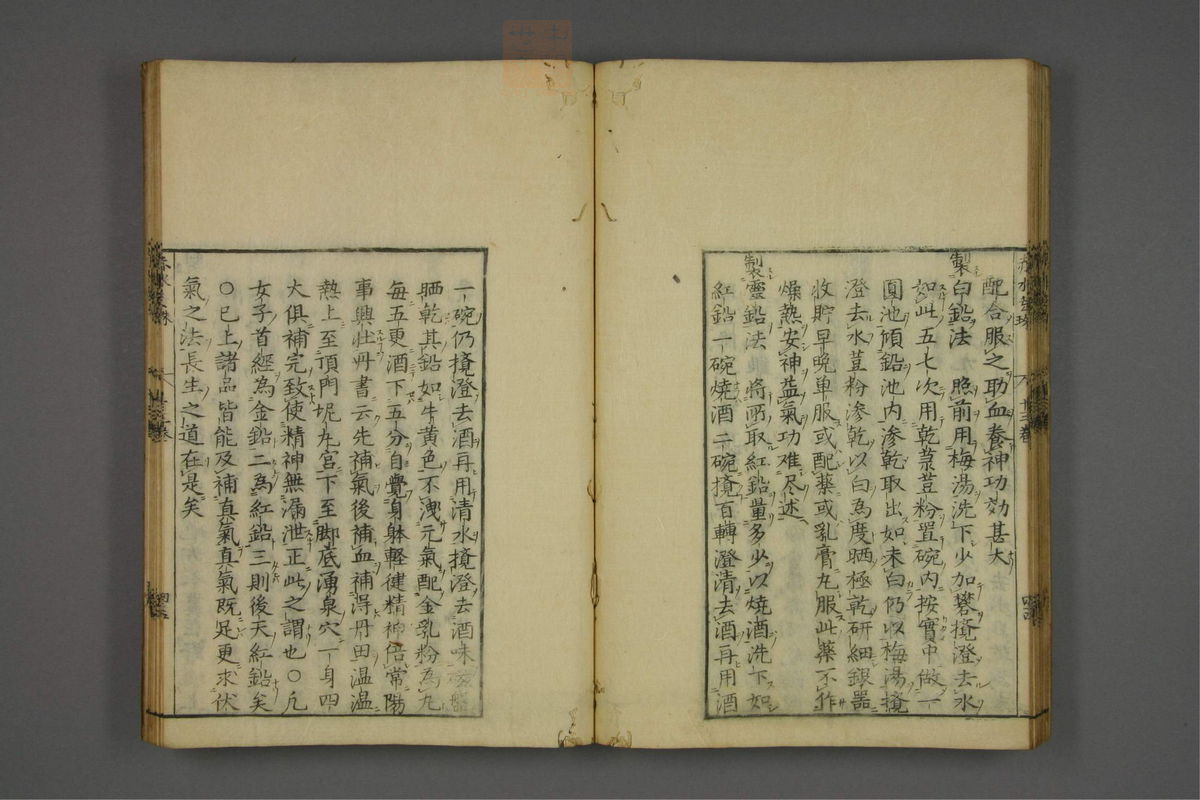 配合服之助血養神功効甚大
製白鉛法　照前用梅湯洗下少加礬攪澄去水
如此五七次用乾菉荳粉置碗内按實中做一
圓池傾鉛池内滲乾取出如未白仍以梅湯攪
澄去水荳粉滲乾以白為度晒極乾研細銀器
收貯早晩单服或配藥或乳膏丸服此藥不作
燥熱安神益氣功难尽述
製靈鉛法　將所取紅鉛量多少以焼酒洗下如
紅鉛一碗焼酒二碗攪百轉澄清去酒再用酒
一碗仍攪澄去酒再用清水攪澄去酒味
晒乾其鉛如牛黄色不洩元氣配金乳粉為丸
每五更酒下五分自覺身躰軽健精神倍常陽
事興壮丹書云先補氣後補血補得丹田温温
熱上至頂門坭丸宮下至脚底湧泉穴一身四
大俱補完致使精神無漏泄正此之謂也○凡
女子首經為金鉛二為紅鉛三則後天紅鉛矣
○已上諸品皆能及補真氣真氣既足更求伏
氣之法長生之道在是矣